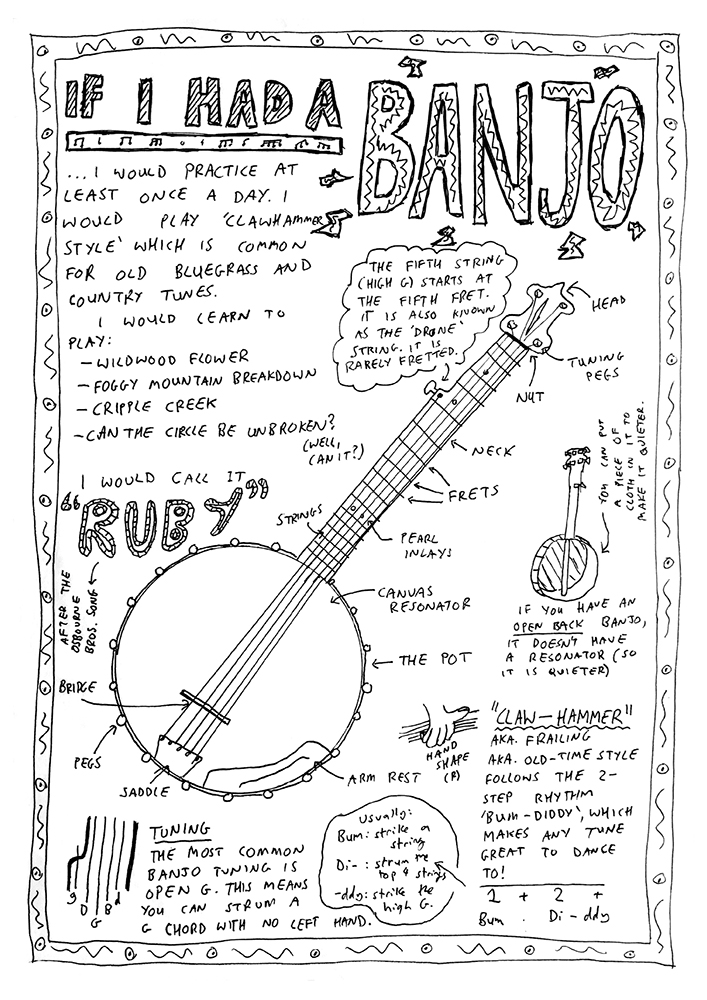 IF I HAD A
BANJO
...I WOULD PRACTICE AT
LEAST ONCE A DAY. I
WOULD PLAY 'CLAWHAMMER
STYLE' WHICH IS COMMON
FOR OLD BLUEGRASS AND
COUNTRY TUNES.
I WOULD LEARN TO
PLAY:
-WILDWOOD FLOWER
-FOGGY MOUNTAIN BREAKDOWN
-CRIPPLE CREEK
-CAN THE CIRCLE BE UNBROKEN?
(WELL,
CAN IT?)
I WOULD CALL IT
"RUBY"
AFTER THE
OSBOURNE
BROS. SONG
THE FIFTH STRING
(HIGH G) STARTS AT
THE FIFTH FRET.
IT IS ALSO KNOWN
AS THE 'DRONE'
STRING. IT IS
RARELY FRETTED.
HEAD
TUNING
PEGS
NUT
NECK
FRETS
STRINGS
PEARL
INLAYS
CANVAS
RESONATOR
THE POT
BRIDGE
PEGS
SADDLE
ARM REST
YOU CAN PUT
A PIECE OF
CLOTH IN IT TO
MAKE IT QUIETER.
IF YOU HAVE AN
OPEN BACK BANJO,
IT DOESN'T HAVE
A RESONATOR (SO
IT IS QUIETER)
HAND
SHAPE
(R)
"CLAW-HAMMER"
AKA. FRAILING
AKA. OLD-TIME STYLE
FOLLOWS THE 2-
STEP RHYTHM
'BUM-DIDDY', WHICH
MAKES ANY TUNE
GREAT TO DANCE
TO!
1 + 2 +
Bum . Di-ddy
usually:
Bum: strike a
string
Di-: strum the
top 4 strings
-ddy: strike the
high G.
g D G B d
TUNING
THE MOST COMMON
BANJO TUNING IS
OPEN G. THIS MEANS
YOU CAN STRUM A
G CHORD WITH NO LEFT HAND.